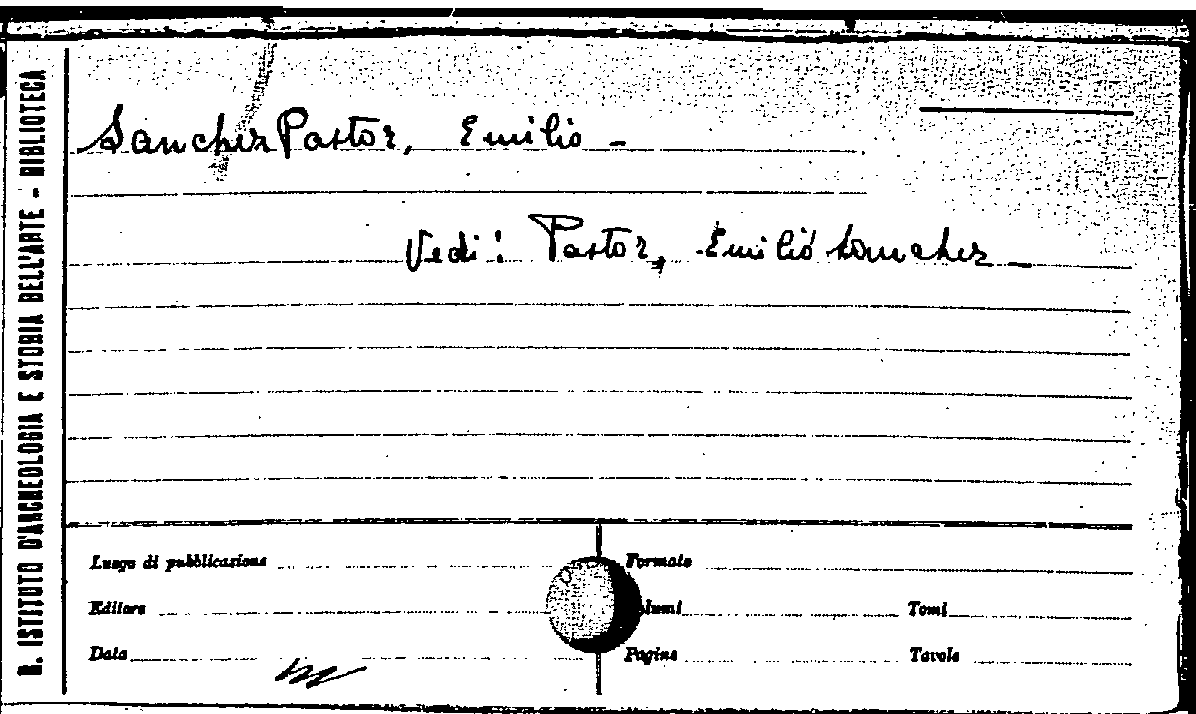 R. ISTITUTO D'ARCHEOLOGIA E STORIA DELL'ARTE - BIBLIOTECA
Sanchez Pastor, Emilio -
Vedi: Pastor, Emilio Sanchez -
Luogo di pubblicazione Formato
Editore Volumi Tomi
Data Pagine Tavole